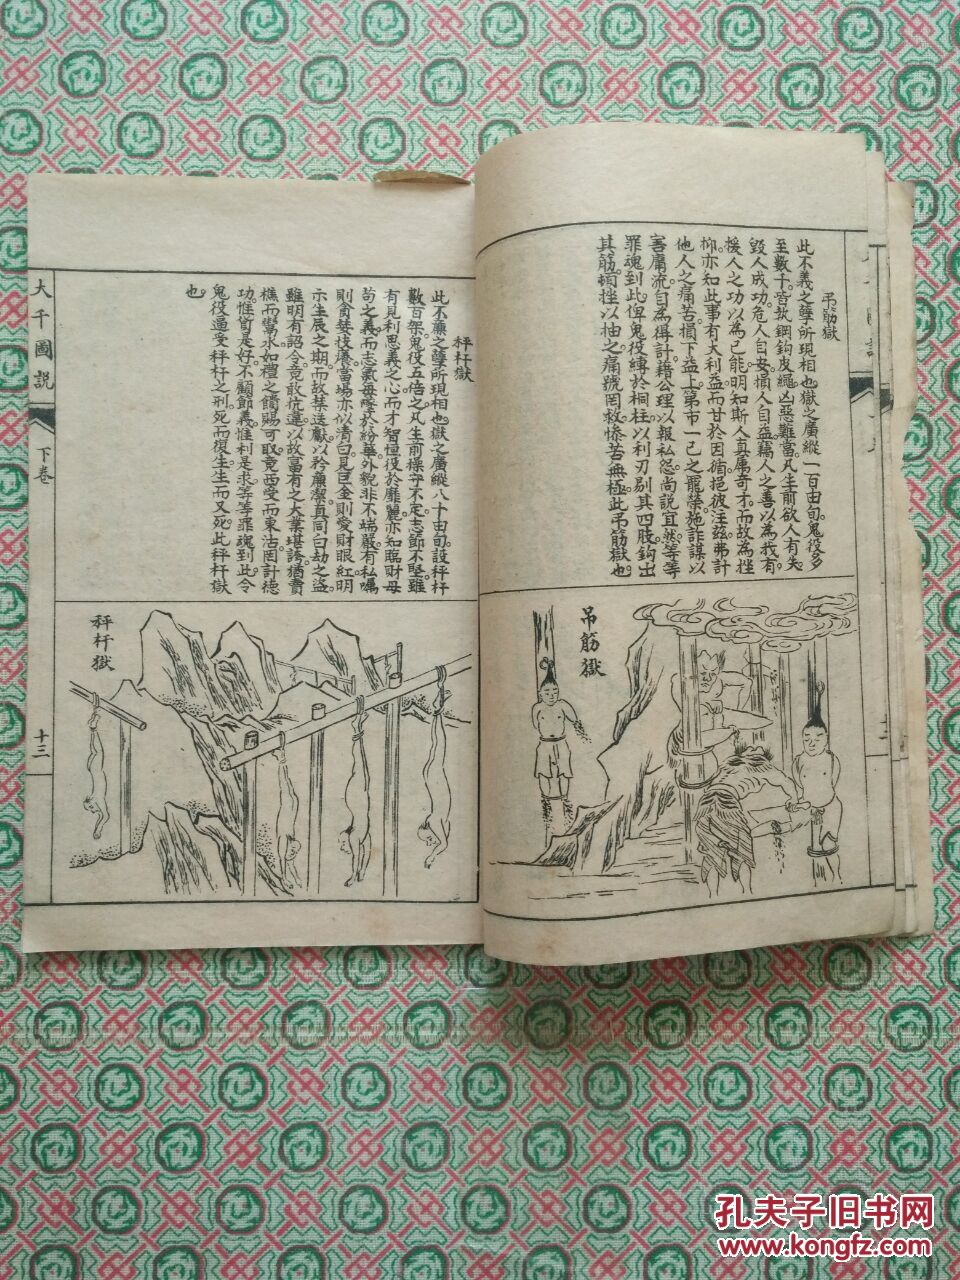 吊筋獄
此不義之孽所現相也獄之廣縱一百由旬鬼役多
至數千皆執鋼鉤皮繩凶惡難當凡生前欲人有失
毀人成功危人自安損人自益竊人之善以為我有
援人之功以為已能明知斯人真屬奇才而故為挫
抑亦知此事有大利益而甘於因循挹彼注茲弗計
他人之痛苦損下益上第市一已之寵榮施詐謀以
害庸流自為得計藉公理以報私怨尚說宜然等等
罪魂到此俾鬼役縛於桐柱以利刃剔其四肢鉤出
其筋頓挫以抽之痛號罔救慘苦無極此吊筋獄也
吊筋獄
秤杆獄
此不廉之孽所現相也獄之廣縱八十由旬設秤杆
數百架鬼役五倍之凡生前操守不定志節不堅雖
有見利思義之心而才智恒役於靡麗亦知臨財毋
苟之義而志氣每墮於紛華外貌非不端嚴有私囑
則貪婪技癢當場亦似清白見巨金則愛財眼紅明
示生辰之期而故禁送獻以矜廉潔真同白劫之盜
雖明有詔令竟敢抗違以故富有之大業堪誇猶賣
樵而鬻水如禮之餽賜可取竟西受而東沽罔計德
功惟貨是好不顧節義惟利是求等等罪魂到此令
鬼役逼受秤杆之刑死而復生生而又死此秤杆獄
也
秤杆獄
大千圖説
下卷
十三
孔夫子旧书网
www.kongfz.com